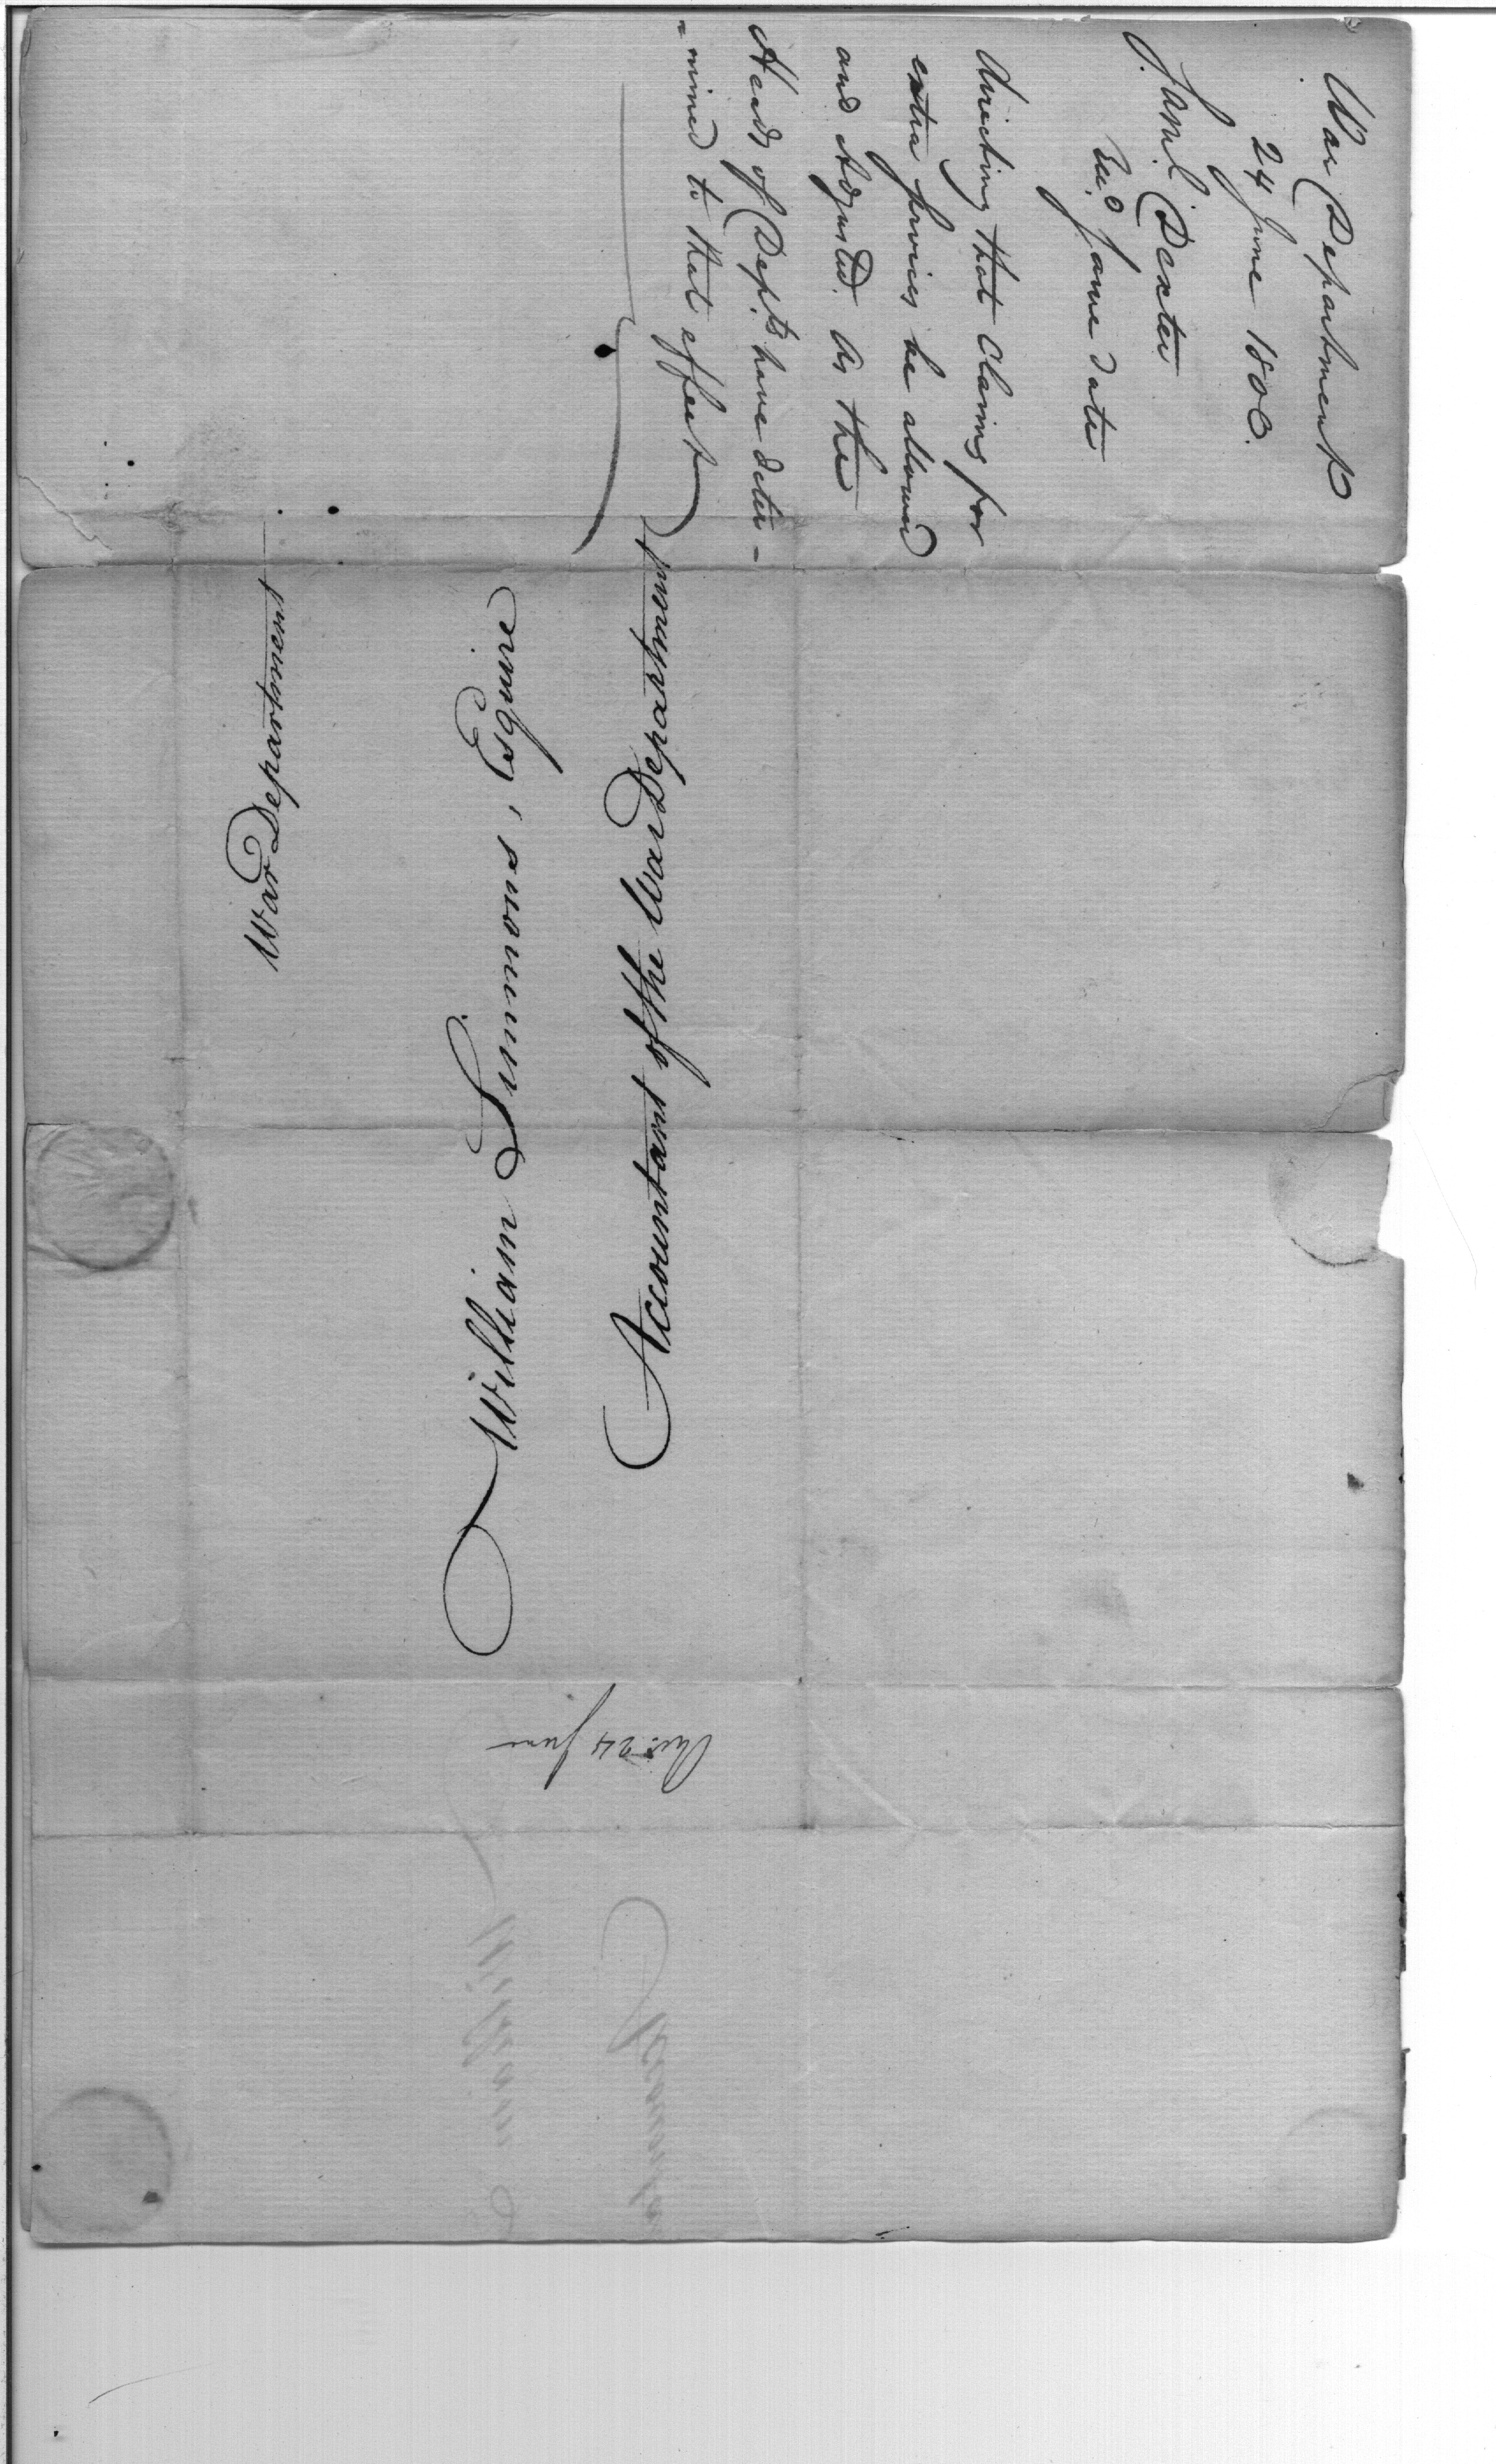 War Department
24 June 1800.
Saml. Dexter
Recd. same date
directing that Claims for
extra services be allowed
and Adjusted. as the
Heads of Depts. have deter-
-mined to that effect
War Department
William Simmons, Esquire
Accountant of the War Department
24 June